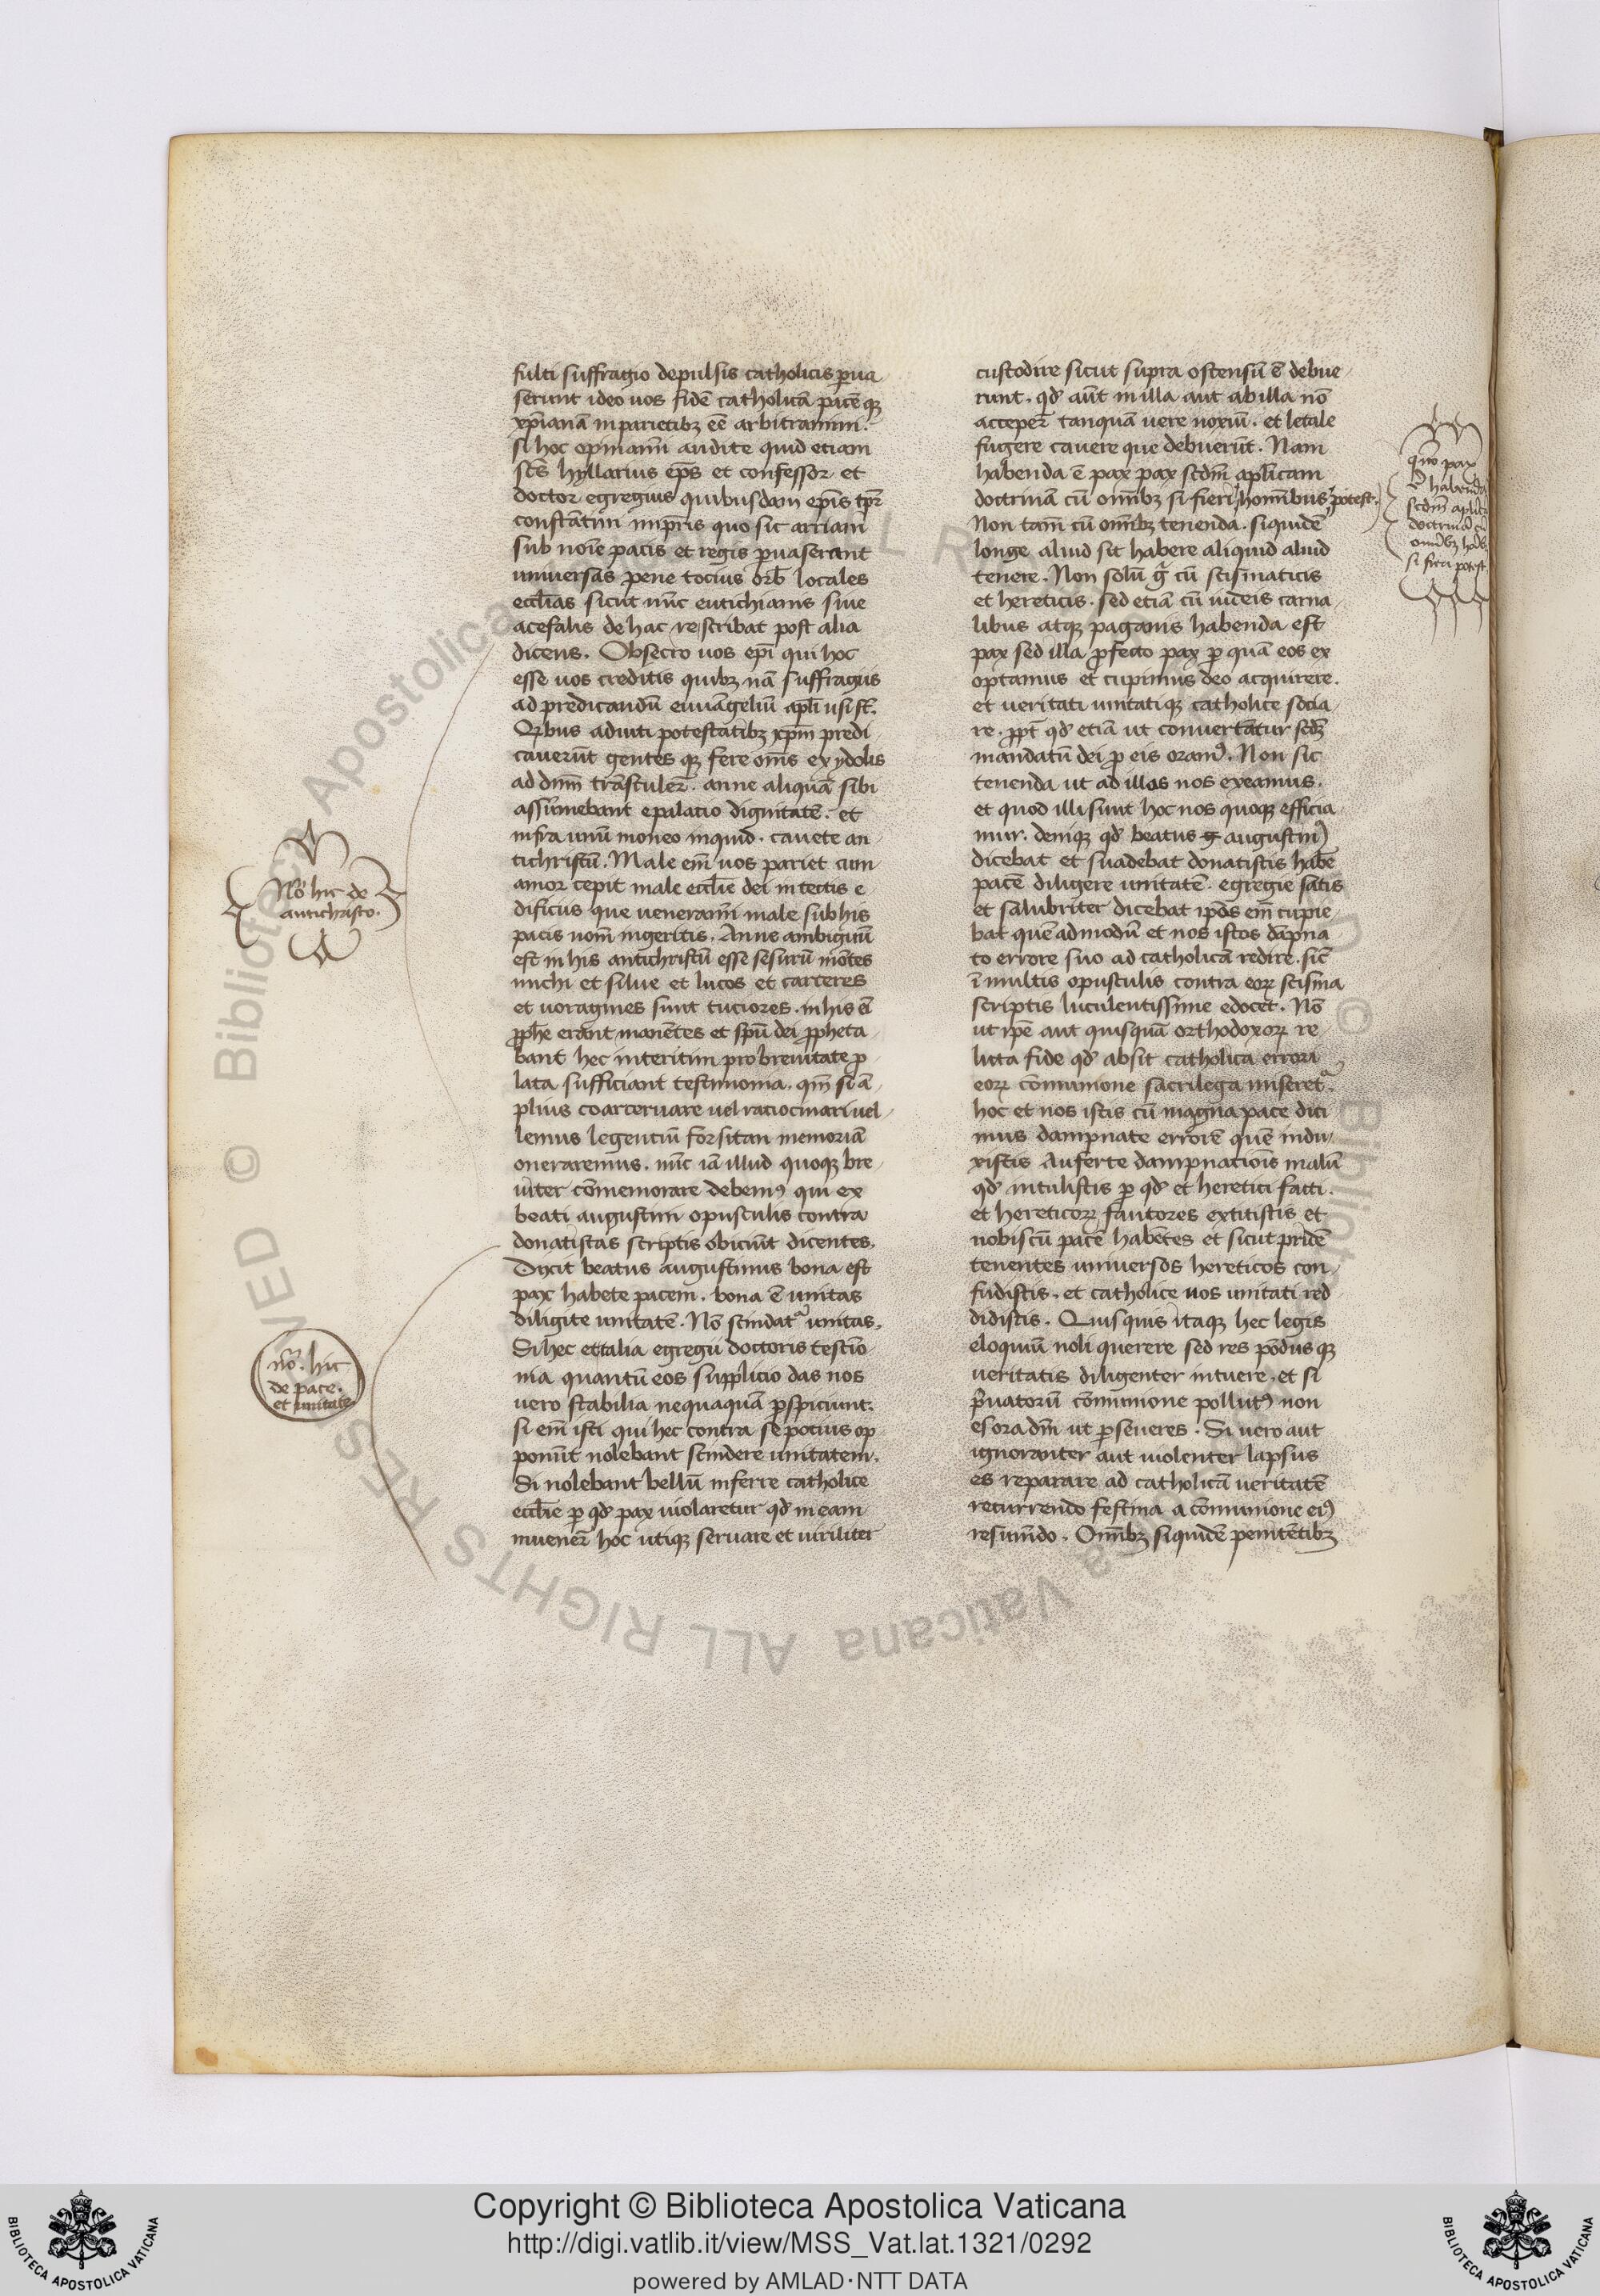 fulti suffragio depulsis catholicis p̱ua
serunt ideo uos fidē catholicā pacē qꝫ
xp̄ianā in parietibꝫ eē arbitramini.
si hoc opinam̄i audite quid etiam
sc̄s hyllarius ep̄s et confessor et
doctor egregius quibusdam ep̄is tp̄r
constātini imp̄ris quo sic arriani
sub noīe pacis et regis ꝑuaserant
uniuersas pene tocius orb̄ locales
eccl̄ias sicut nūc eutichianis siue
acefalis de hac re scribat post alia
dicens. Obsecro uos ep̄i qui hoc
esse uos creditis quibꝫ nā suffragiis
ad predicandū euuāgeliū apl̄i usi st̄.
Qibus adiuti potestatibꝫ xp̄m predi
cauerūt gentes qꝫ fere om̄s ex ydolis
ad dn̄m trāstuler̄. anne aliquā sibi
assumebant e palacio dignitatē. et
infra unū moneo inquid. cauete an
tichristū. Male em̄ uos pariet cum
amor cepit male eccl̄ie dei in tectis e
dificiis que ueneram̄i male sub his
pacis nom̄ ingeritis. Anne ambiguū
est in his antichristū esse sesurū mōtes
michi et silue et lucos et carceres
et uoragines sunt tuciores. in his em̄
ꝓph̄e erant manētes et spū dei ꝓpheta
bant hec interitim pro breuitate ꝓ
lata sufficiant testimonia. qm̄ si ā
plius coarceruare uel ratiocinari uel
lemus legentiū forsitan memoriā
oneraremus. nūc iā illud quoqꝫ bre
uiter cōmemorare debemꝰ qui ex
beati augustini opusculis contra
donatistas scriptis obiciūt dicentes.
Dixit beatus augustinus bona est
pax habete pacem. bona ē unitas
diligite unitatē. Nō scindat᷑ unitas.
Si hec et talia egregii doctoris testīo
nia quantū eos supplicio das nos
uero stabilia nequaquā ꝑspiciunt.
si em̄ isti qui hec contra se potius op
ponūt nolebant scindere unitatem.
Si nolebant bellū inferre catholice
eccl̄ie ꝑ qd̄ pax uiolaretur qd̄ in eam
inuener̄ hoc utiqꝫ seruare et uiriliter
custodire sicut supra ostensū ē debue
runt. qd̄ aūt in illa aut ab illa nō
acceper̄ tanquā uere noxiū. et letale
fugere cauere que debuerūt. Nam
habenda ē pax pax scdm̄ apl̄icam
doctrinā cū om̄ibꝫ si fieri hom̄ibus potest.
Non tam̄ cū om̄ibꝫ tenenda. siquidē
longe aliud sit habere aliquid aliud
tenere. Non solū g̊ cū scismaticis
et hereticis. sed etiā cū iudeis carna
libus atqꝫ paganis habenda est
pax sed illa ꝓfecto pax ꝑ quā eos ex
optamus et cupimus deo acquirere.
et ueritati unitatiqꝫ catholice socia
re. ꝓpt̄ qd̄ etiā ut conuertātur scd̄m
mandatū dei ꝓ eis oramꝰ. Non sic
tenenda ut ad illos nos exeamus.
et quod illi sunt hoc nos quoqꝫ efficia
mur. deniqꝫ qd̄ beatus augustinꝰ
dicebat et suadebat donatistis hab̄e
pacē diligere unitatē. egregie satis
et salubriter dicebat ip̄os em̄ cupie
bat quē admodū et nos istos dāpna
to errore suo ad catholicā redire. sic̄
ī multis opusculis contra eoꝝ scisma
scriptis luculentissime edocet. Nō
ut ip̄e aut quisquā orthodoxoꝝ re
licta fide qd̄ absit catholica errori
eoꝝ cōmunione sacrilega miseret᷑.
hoc et nos istis cū magna pace dici
mus dampnate errorē quē indu
xistis Auferte dampnatiōis malū
qd̄ intulistis ꝑ qd̄ et heretici facti.
et hereticoꝝ fautores extitistis et
nobiscū pacē habētes et sicut pridē
tenentes uniuersos hereticos con
fudistis. et catholice uos unitati red
didistis. Quisquis itaqꝫ hec legis
eloquiū noli querere sed res pōdus qꝫ
ueritatis diligenter intuere. et si
p̄uatorū cōmunione pollutꝰ non
es ora dm̄ ut ꝑseueres. Si uero aut
ignoranter aut uiolenter lapsus
es reparare ad catholicā ueritatē
recurrendo festina a cōmunione eiꝰ
resiliēdo. Om̄ibꝫ siquidē penitētibꝫ
Nō hic de
antichristo.
nō. hic
de pace.
et unitate
quō pax
ē habenda
scdm̄ apl̄icā
doctrinā cū
om̄ibꝫ hoībꝫ
si fieri potest.
Copyright © Biblioteca Apostolica Vaticana
http://digi.vatlib.it/view/MSS_Vat.lat.1321/0292
powered by AMLAD·NTT DATA
BIBLIOTECA APOSTOLICA VATICANA
BIBLIOTECA APOSTOLICA VATICANA